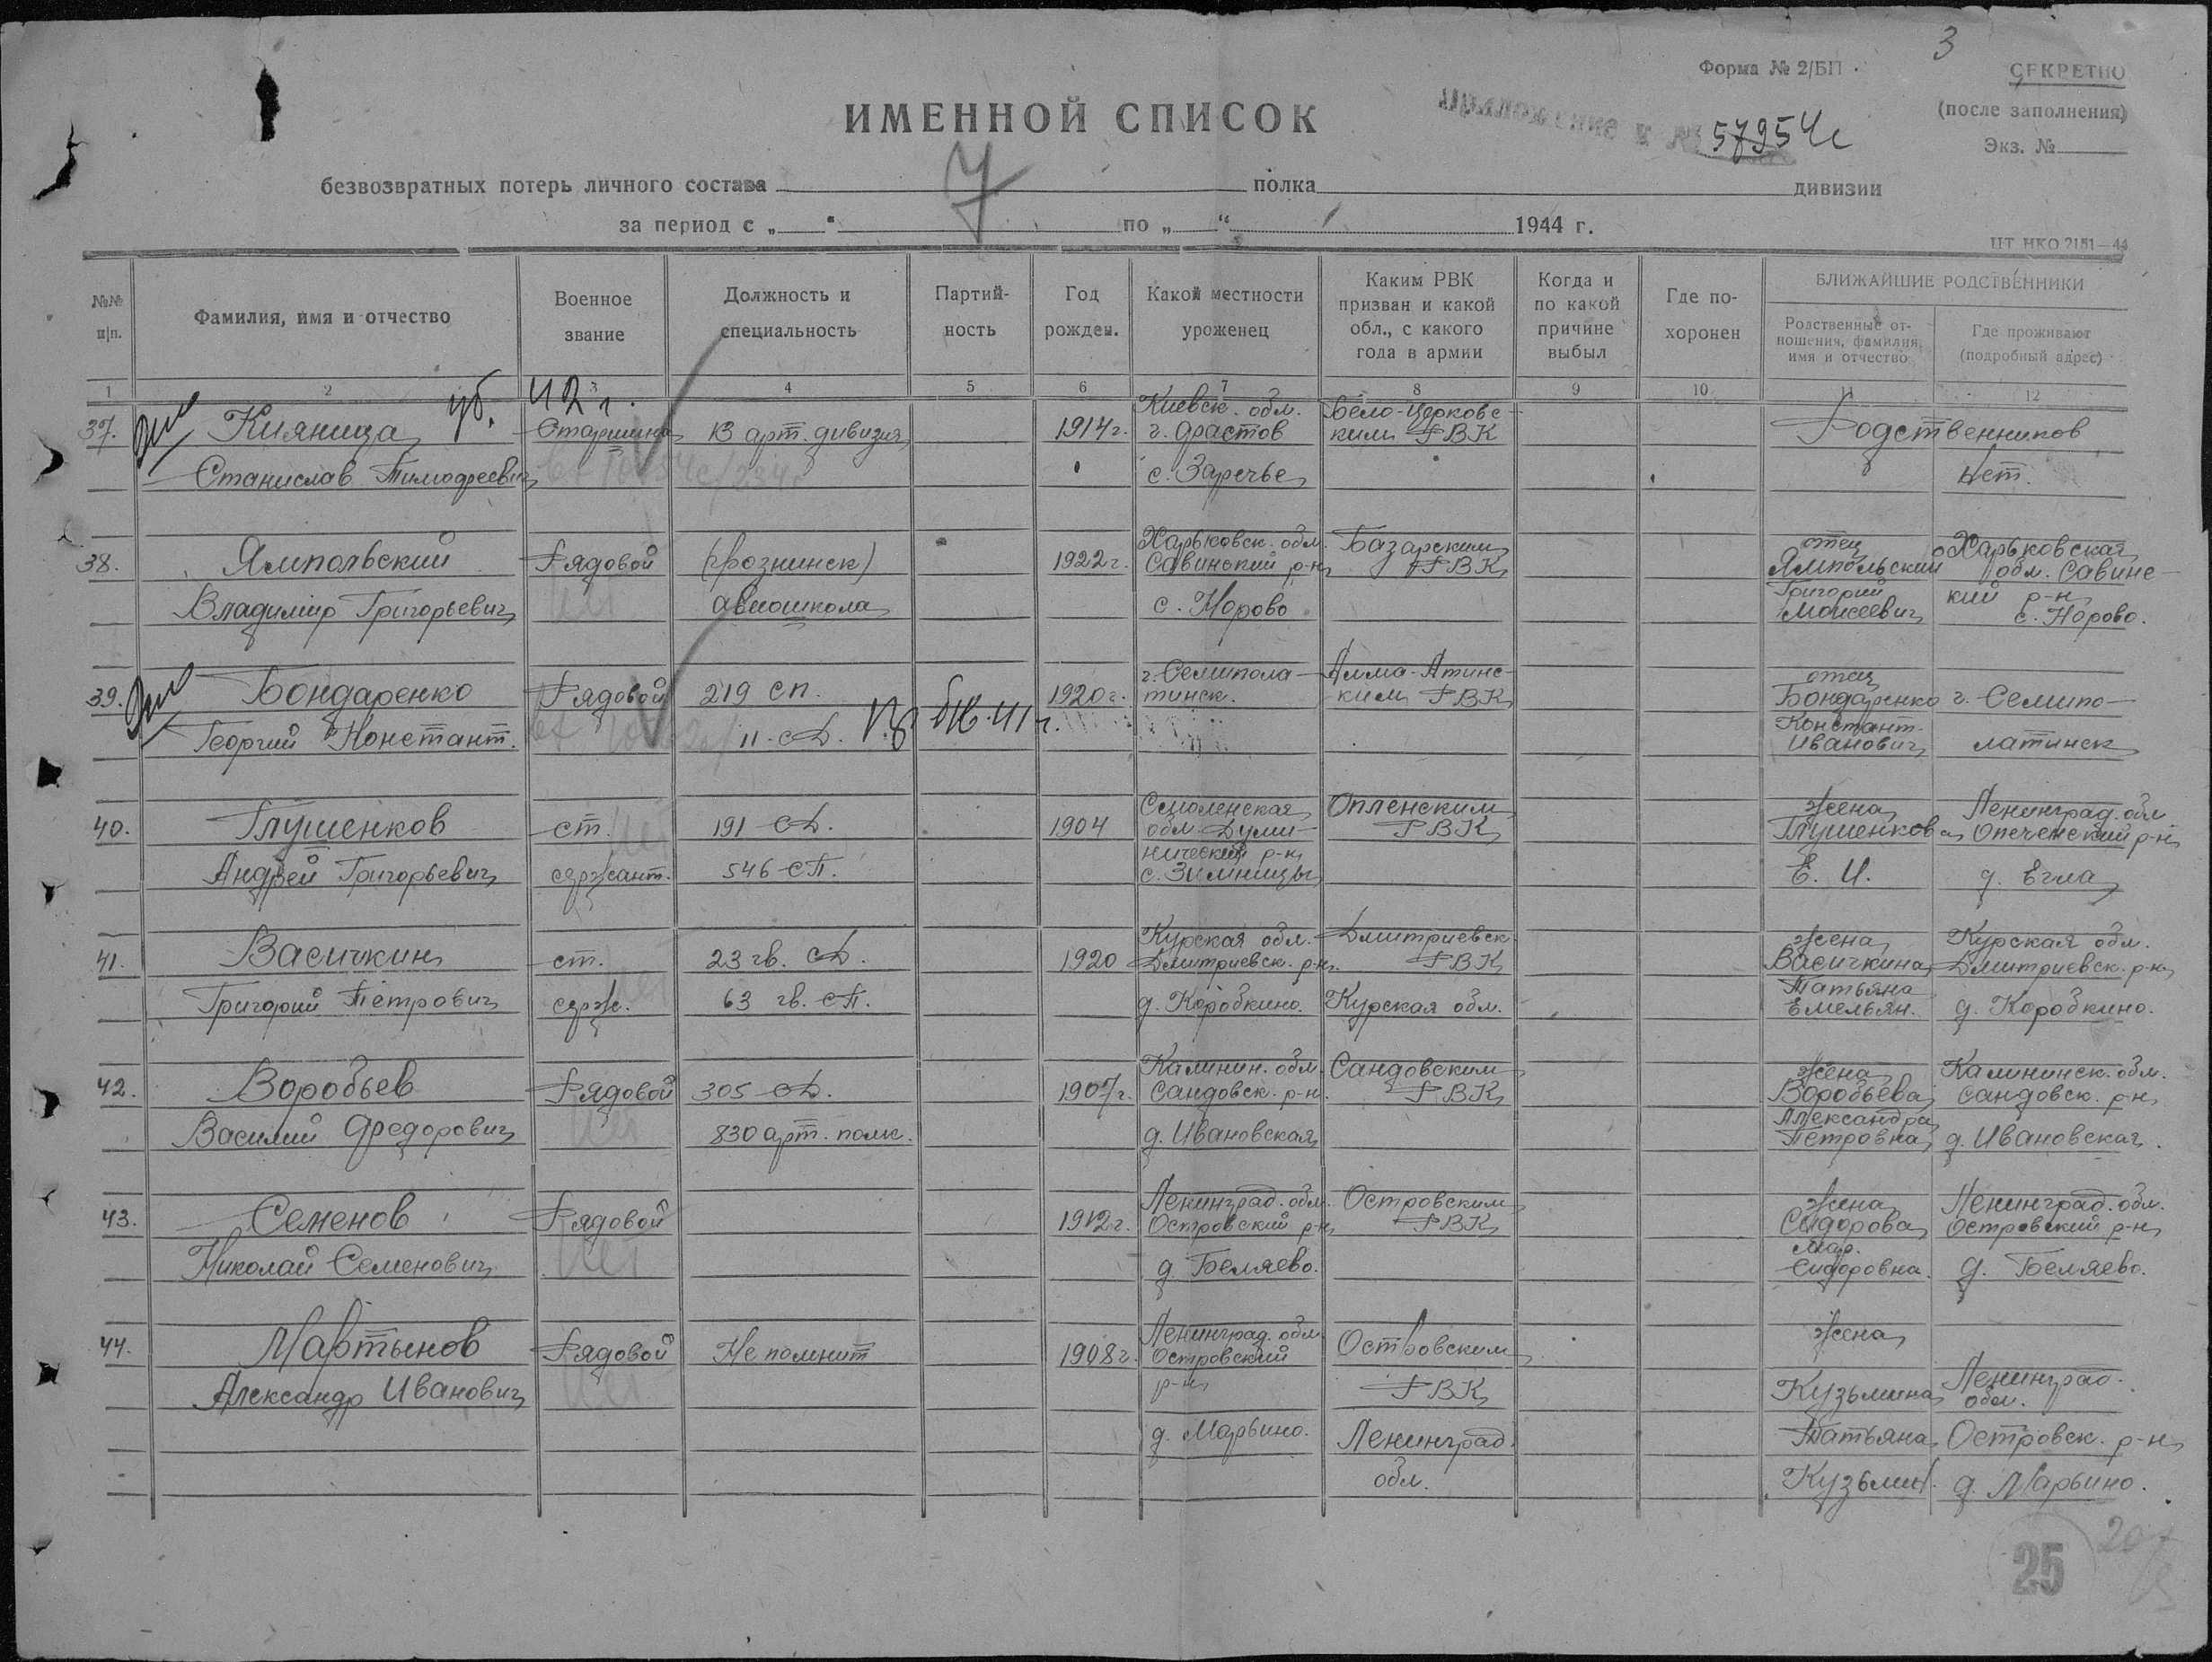 3
Форма № 2/БП
СЕКРЕТНО
(после заполнения)
Экз. №
ИМЕННОЙ СПИСОК
57954с
безвозвратных потерь личного состава полка дивизии
7
за период с „ “ по „ “ 1944 г.
ЦТ НКО 2151—44
№№ п/п.
Фамилия, имя и отчество
Военное звание
Должность и специальность
Партий-ность
Год рожден.
Какой местности уроженец
Каким РВК призван и какой обл., с какого года в армии
Когда и по какой причине выбыл
Где по-хоронен
БЛИЖАЙШИЕ РОДСТВЕННИКИ
Родственные от-ношения, фамилия, имя и отчество
Где проживают (подробный адрес)
1 2 3 4 5 6 7 8 9 10 11 12
уб. 42 г.
37. Кияница Старшина 13 арт. дивизия 1914 г. Киевск. обл. г. Фастов Бело-Церковс-ким РВК Родственников
Станислав Тимофеевич с. Заречье нет.
38. Ямпольский Рядовой (Грознинск) 1922 г. Харьковск. обл. Савинский р-н Базарским РВК отец Ямпольский Харьковская обл. Савинс-
Владимир Григорьевич авиошкола с. Норово Григорий Моисеевич кий р-н с. Норово.
39. Бондаренко Рядовой 219 сп. 1920 г. г. Семипола-тинск. Алма-Атинс-ким РВК отец Бондаренко г. Семипо-
Георгий Констант. 11-сД. 41 г. Констант. Иванович латинск
40. Глушенков ст. 191 СД. 1904 Смоленская обл. Думи- Опленским РВК жена Глушенкова Ленинград. обл Опеченский р-н
Андрей Григорьевич сержант. 546 СП. нический р-н с. Зимницы Е. И. д. Егла
41. Васичкин ст. 23 гв. СД. 1920 Курская обл. Дмитриевск. р-н. Дмитриевск РВК жена Васичкина Курская обл. Дмитриевск. р-н
Григорий Петрович серж. 63 гв. СП. д. Коробкино. Курская обл. Татьяна Емельян. д. Коробкино.
42. Воробьев Рядовой 305 СД. 1907 г. Калинин. обл. Сандовск. р-н. Сандовским РВК жена Воробьева Калининск. обл. Сандовск. р-н
Василий Федорович 830 арт. полк. д. Ивановская Александра Петровна д. Ивановская.
43. Семенов Рядовой 1912 г. Ленинград. обл. Островский р-н Островским РВК жена Сидорова Ленинград. обл. Островский р-н
Николай Семенович д. Беляево. Мар. Сидоровна. д. Беляево.
44. Мартынов Рядовой Не помнит 1908 г. Ленинград. обл. Островский р-н Островским жена
Александр Иванович РВК Кузьмина Ленинград. обл.
д. Марьино. Ленинград. Татьяна Островск. р-н
обл. Кузьмин. д. Марьино.
25